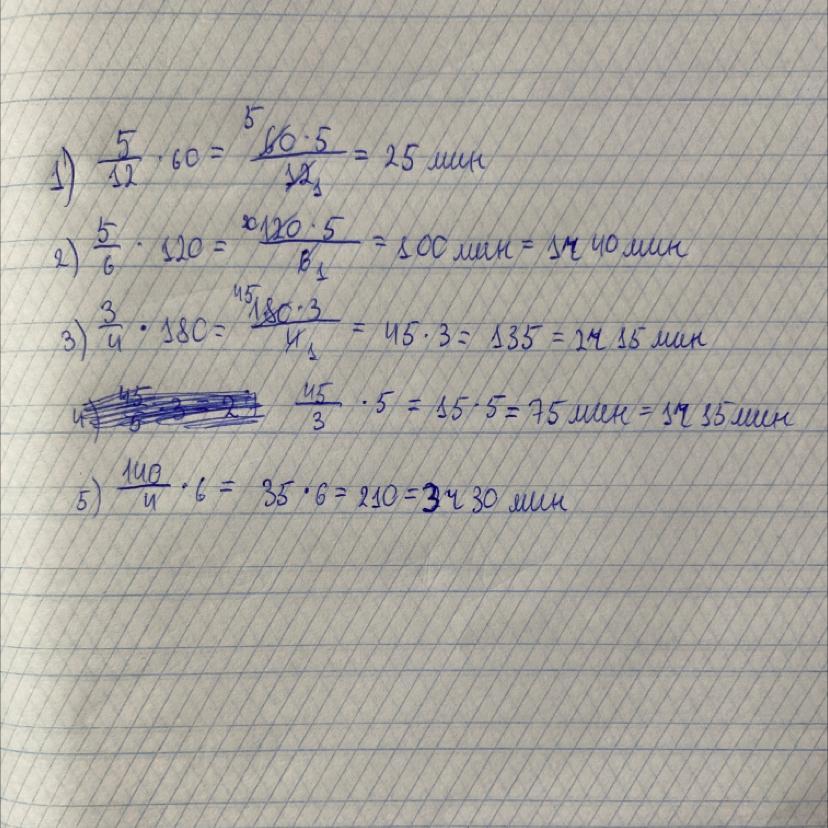 1) 5/12 · 60 = 5 60·5/12 1 = 25 мин
2) 5/6 · 120 = 20 120·5/6 1 = 100 мин = 1ч 40 мин
3) 3/4 · 180 = 45 180·3/4 1 = 45·3 = 135 = 2ч 15 мин
4) 45/3 · 5 = 15·5 = 75 мин = 1ч 15 мин
5) 140/4 · 6 = 35·6 = 210 = 3ч 30 мин